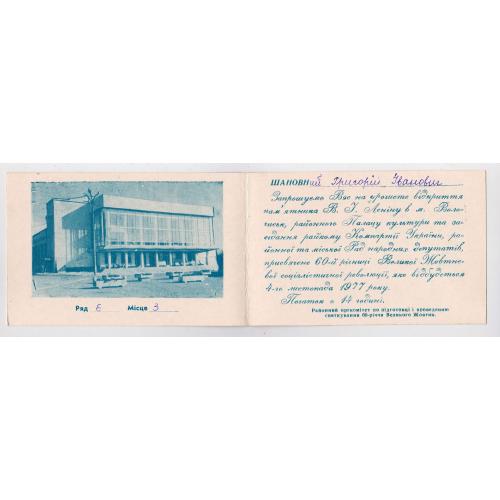 Ряд 6 Місце 3
ШАНОВНий Григорій Іванович
Запрошуємо Вас на урочисте відкриття
пам'ятника В. І. Леніну в м. Воло-
чиськ, районного Палацу культури та за-
сідання райкому Компартії України, ра-
йонної та міської Рад народних депутатів,
присвячене 60-й річниці Великої Жовтне-
вої соціалістичної революції, яке відбудеться
4-го листопада 1977 року.
Початок о 14 годині.
Районний оргкомітет по підготовці і проведенню
святкування 60-річчя Великого Жовтня.